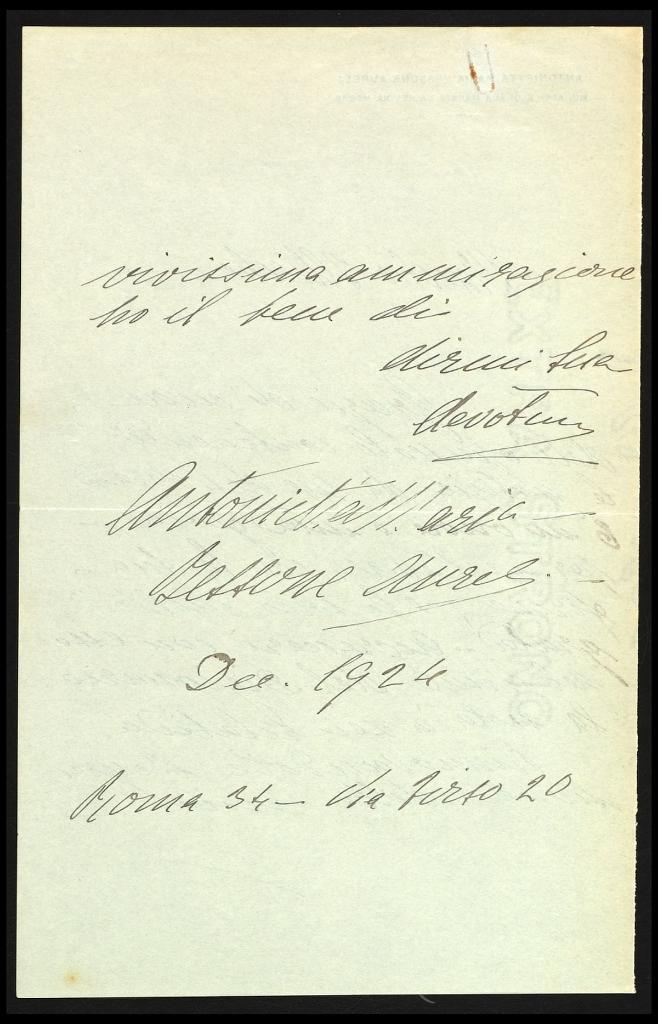 vivissima ammirazione
ho il bene di
dirmi Sua
devotma
Antonietta Maria
Bessone Aureli
Dec. 1924
Roma 34 – Via Tirso 20